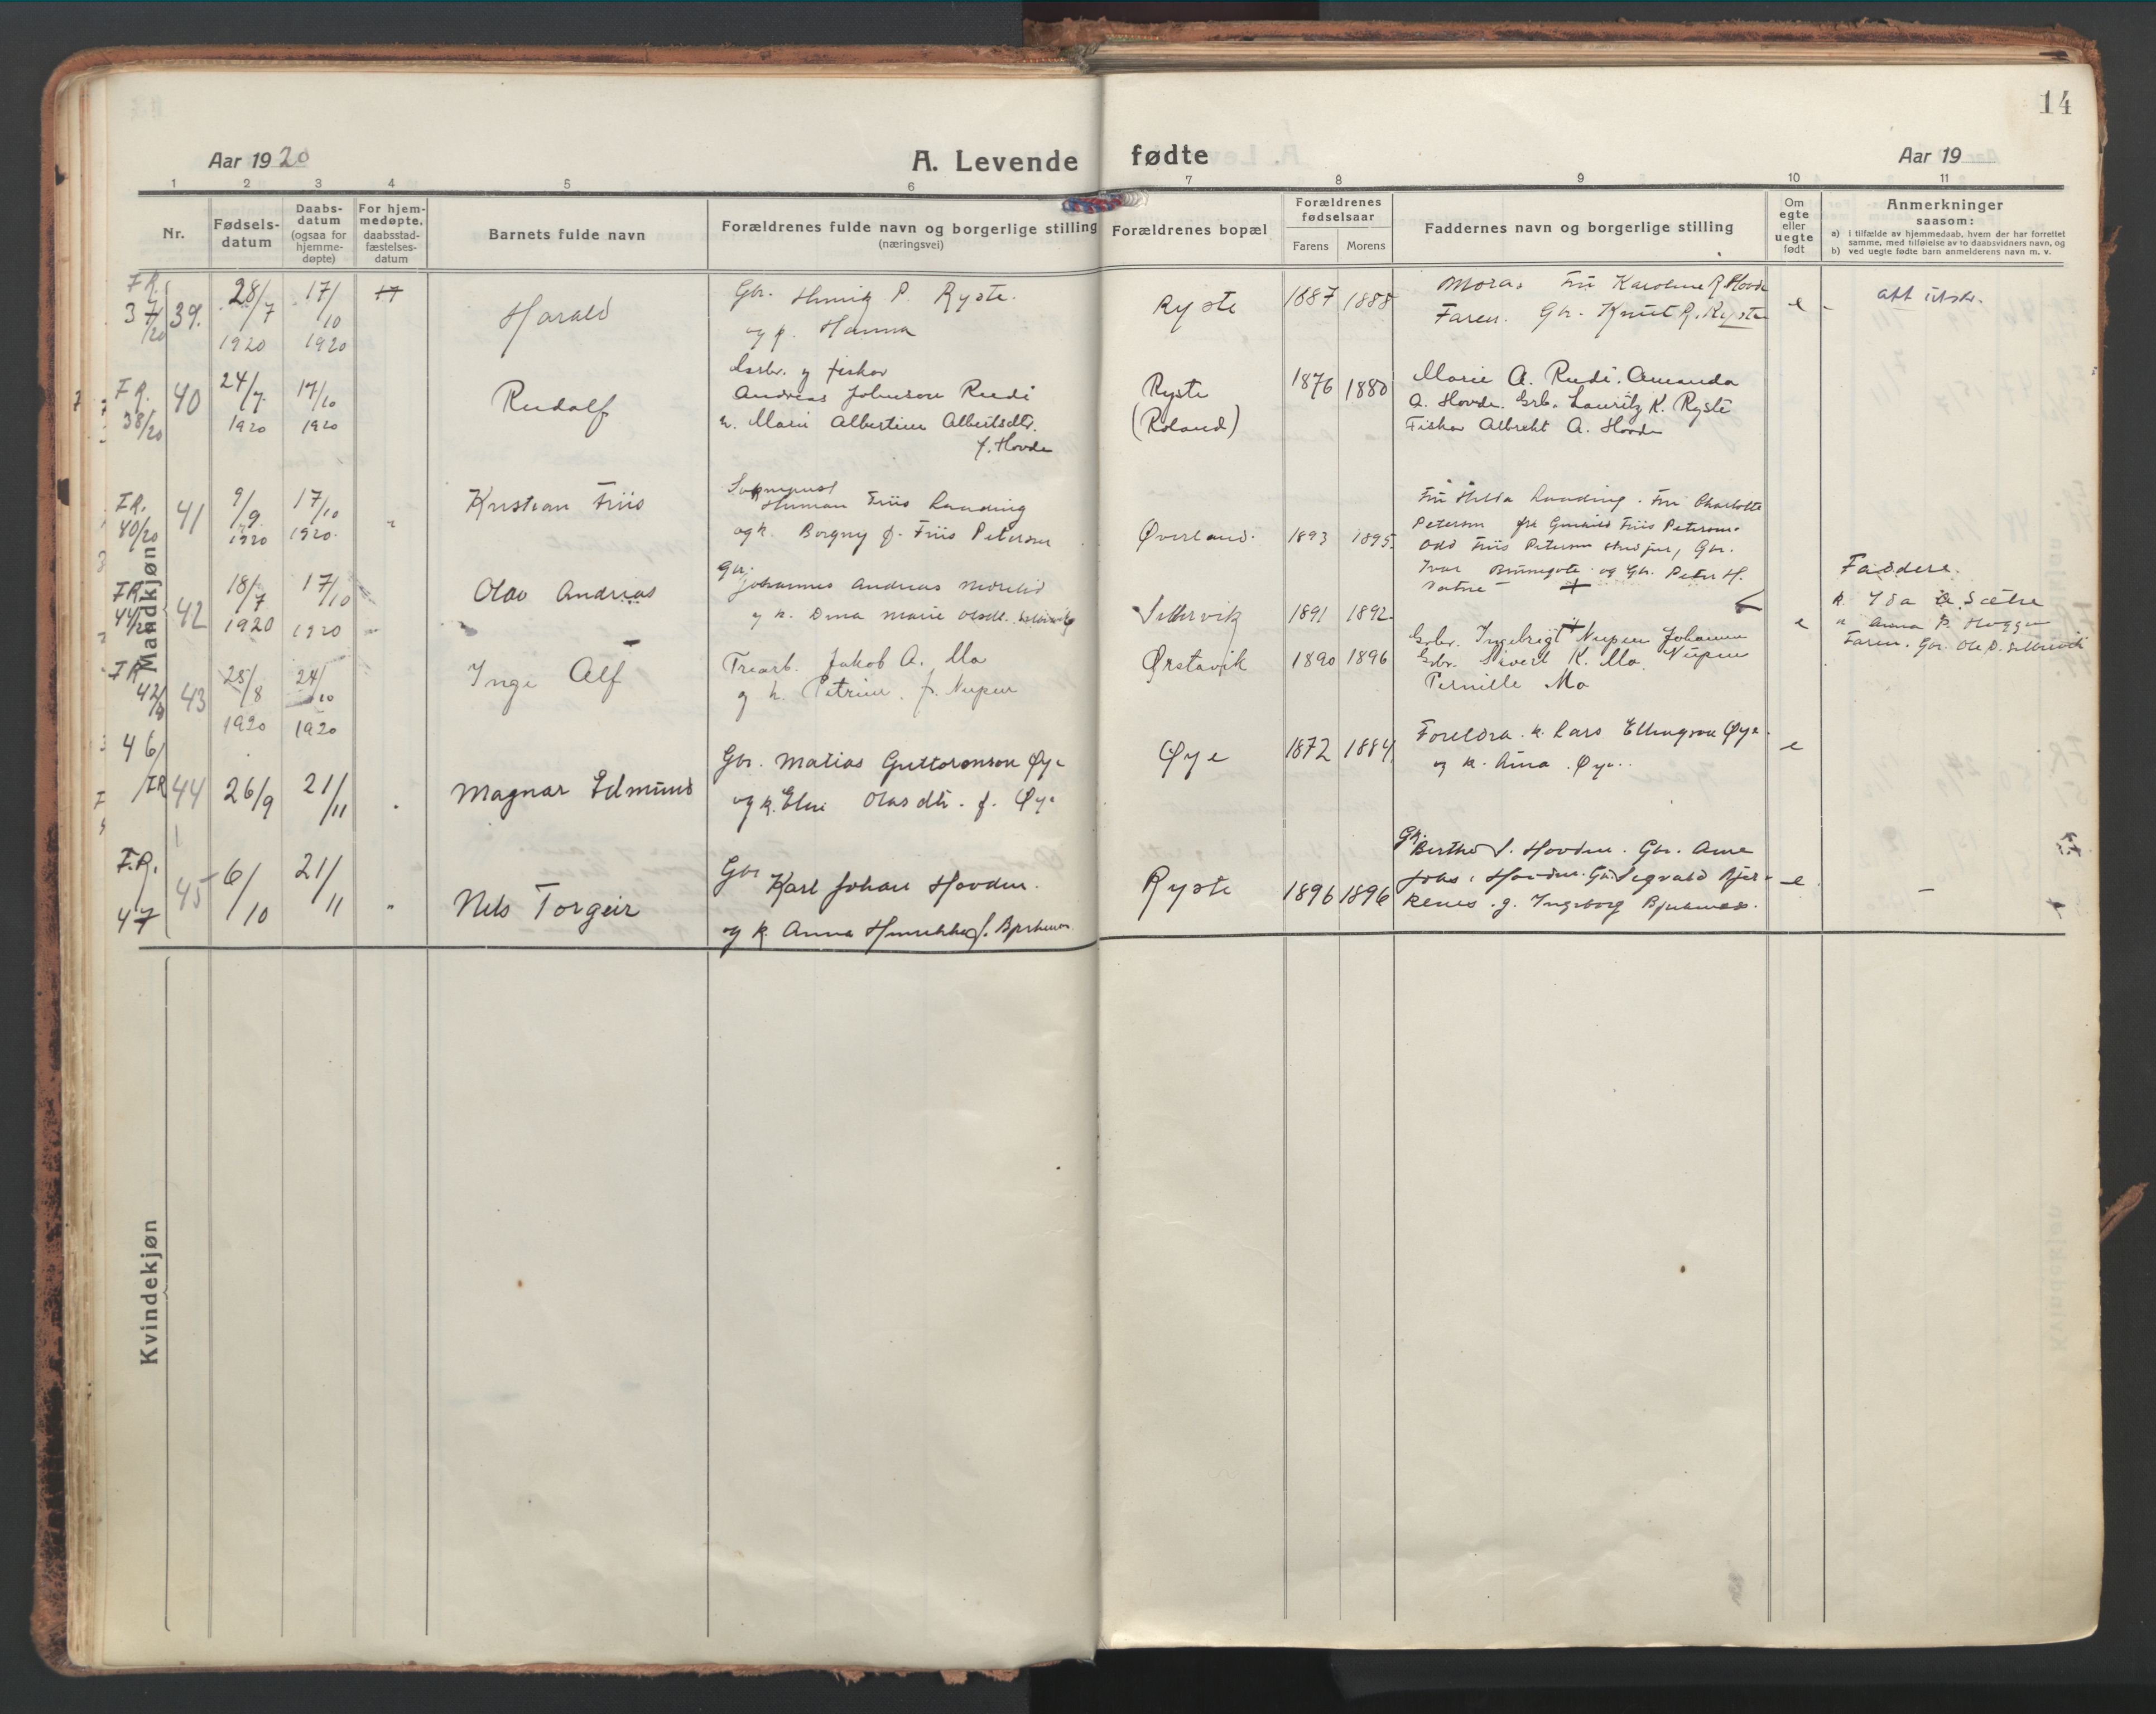 14
Aar 1920
A. Levende fødte
Aar 19
1 2 3 4 5 6 7 8 9 10 11
Nr.
Fødsels-
datum
Daabs-
datum
(ogsaa for
hjemme-
døpte)
For hjem-
medøpte,
daabsstad-
fæstelses-
datum
Barnets fulde navn
Forældrenes fulde navn og borgerlige stilling
(næringsvei)
Forældrenes bopæl
Forældrenes
fødselsaar
Farens Morens
Faddernes navn og borgerlige stilling
Om
egte
eller
uegte
født
Anmerkninger
saasom:
a) i tilfælde av hjemmedaab, hvem der har forrettet
samme, med tilføielse av to daabsvidners navn, og
b) ved uegte fødte barn anmelderens navn m. v.
Mandkjøn
F.R.
37/20 39. 28/7 1920 17/10 1920
Harald
Gbr. P. Ryste.
og k. Hanna
Ryste
1887 1888
Mora. Fru Karoline R. Hovde
Faren. Gbr. Knut R. Ryste
e
att utskr.
F.R.
38/20 40 24/7 1920 17/10 1920
Rudolf
og fiskar
Andreas Johnson Rudi
k. Marie Albertine Albertsdtr.
f. Hovde
Ryste
(Roland)
1876 1880
Marie A. Rudi. Amanda
A. Hovde. Grb. Lauritz K. Ryste
Fiskar Albrekt A. Hovde
F.R.
40/20 41 9/9 1920 17/10 1920.
Kristian Friis
Herman Friis Lunding
og k. Borgny f. Friis Petersen
Øverland.
1893 1895.
Fru Hilda Lunding. Fru Charlotte
Petersen frk Friis Petersen.
Odd Friis Petersen stud jur, Gbr.
Ivar og Gbr. Peter H.
F.R.
44/20 42 18/7 1920 17/10 1920
Olav Andreas
Gbr.
Johannes Andreas
og k. Dina Marie Olsdtr.
1891 1892
e
Faddere.
k. Ida Sætre
k. Anna P.
Faren. Gbr. Ole
F.R.
42/ 43 25/8 1920 24/10 1920
Inge Alf
Trearb. Jakob A. Mo
og k. Petrine f. Nupen
Ørstavik
1890 1896
Grbr. Ingebrigt Nupen Johanna
Grbr. Sivert K. Mo. Nupen
Pernille Mo
46/
F.R. 44 26/9 21/11
Magnar Edmund
Gbr. Matias Guttormson Øye
og k. Elen Olasdtr. f. Øye
Øye
1872 1884
Foreldra. k. Lars Ellingson Øye.
og k. Anna Øye.
e
F.R.
47 45 6/10 21/11
Nils Torgeir
Gbr Karl Johan Hovden.
og k. Anna f. Bjerknes.
Ryste
1896 1896
Berthe S. Hovden. Gbr. Arne
Johs. Hovden. Gbr. Sigvald Bjer-
kenes. g. Ingeborg Bjerknes.
e
Kvindekjøn